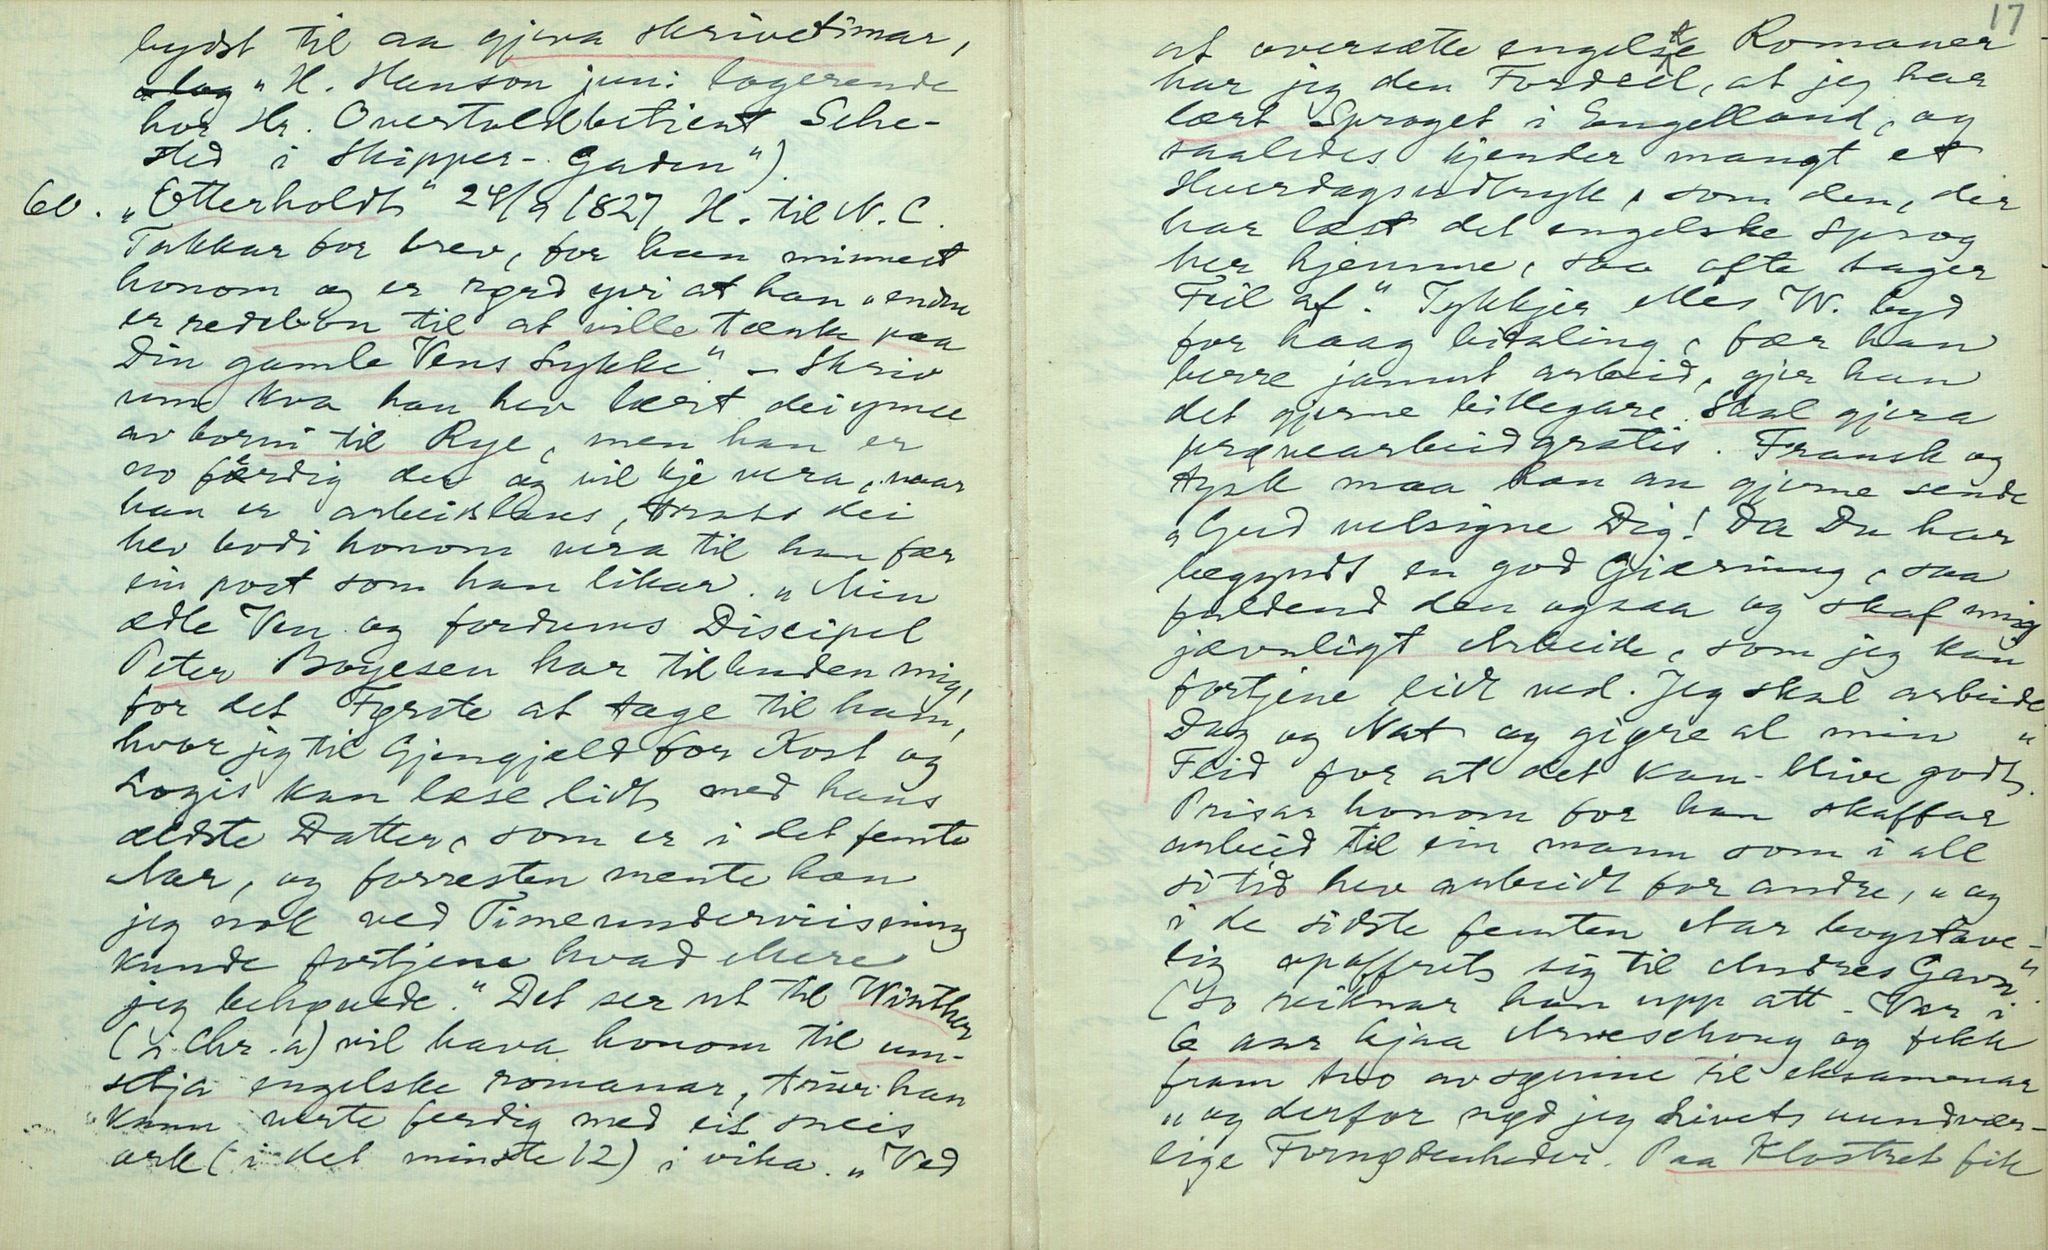 bydst til aa gjera skrivetimar,
"H. Hanson jun: logerende
hos Hr. Overtoldbetient Sehe-
sted i Skipper-Gaden")
60. "Etterholdt" 24/9 1827 H. til N. C.
Takkar for brev, for han minnest
honom og er glad yvi at han "endnu
er redebon til at ville tænke paa
Din gamle Vens Lykke" – Skriv
um kva han hev lært dei ymse
av borni til Rye, men han er
no færdig der og vil kje vera, naar
han er arbeidslaus, trass dei
hev bodi honom vera til han fær
ein post som han likar. "Min
ædle Ven og fordums Discipel
Peter Boyesen har tilbuden mig,
for det Første at tage til ham,
hvor jeg til Gjengjæld for Kost og
Logis kan læse lidt med hans
ældste Datter, som er i det femte
Aar, og forresten mente han
jeg nok ved Timeunderviisning
kunde fortjene hvad Mere
jeg behøvede." Det ser ut til Winther
(i Chr.a) vil hava honom til um-
setja engelske romanar, trur han
kann verte ferdig med eit sneis
ark (i det minste 12) i vika. "Ved
17
at oversætte engelske Romaner
har jeg den Fordeel, at jeg har
lært Sproget i Engelland, og
saaledes kjender mangt et
Hverdagsudtryk, som den, der
har læst det engelske Sprog
her hjemme, saa ofte tager
Feil af." Tykkjer elles W. byd
for haag betaling, fær han
berre jamnt arbeid, gjer han
det gjerne billegare. Skal gjera
prøvearbeid gratis. Fransk og
tysk maa han au gjerne sende
"Gud velsigne Dig! Da Du har
begyndt en god Gjærning, saa
fuldend den ogsaa og skaf mig
jævnligt Arbeide, som jeg kan
fortjene lidt ved. Jeg skal arbeide
Dag og Nat og gjøre al min
Flid for at det kan blive godt."
Prisar honom for han skaffar
arbeid til ein mann som i all
si tid hev arbeidt for andre, "og
i de sidste femten Aar bogstave-
lig opoffret sig til Andres Gavn."
(So reiknar han upp att. Var i
6 aar hjaa Arveschoug og fekk
fram two av sønine til eksamenar
"og derfor nød jeg Livets uundvær-
lige Fornødenheder. Paa Klostret fik